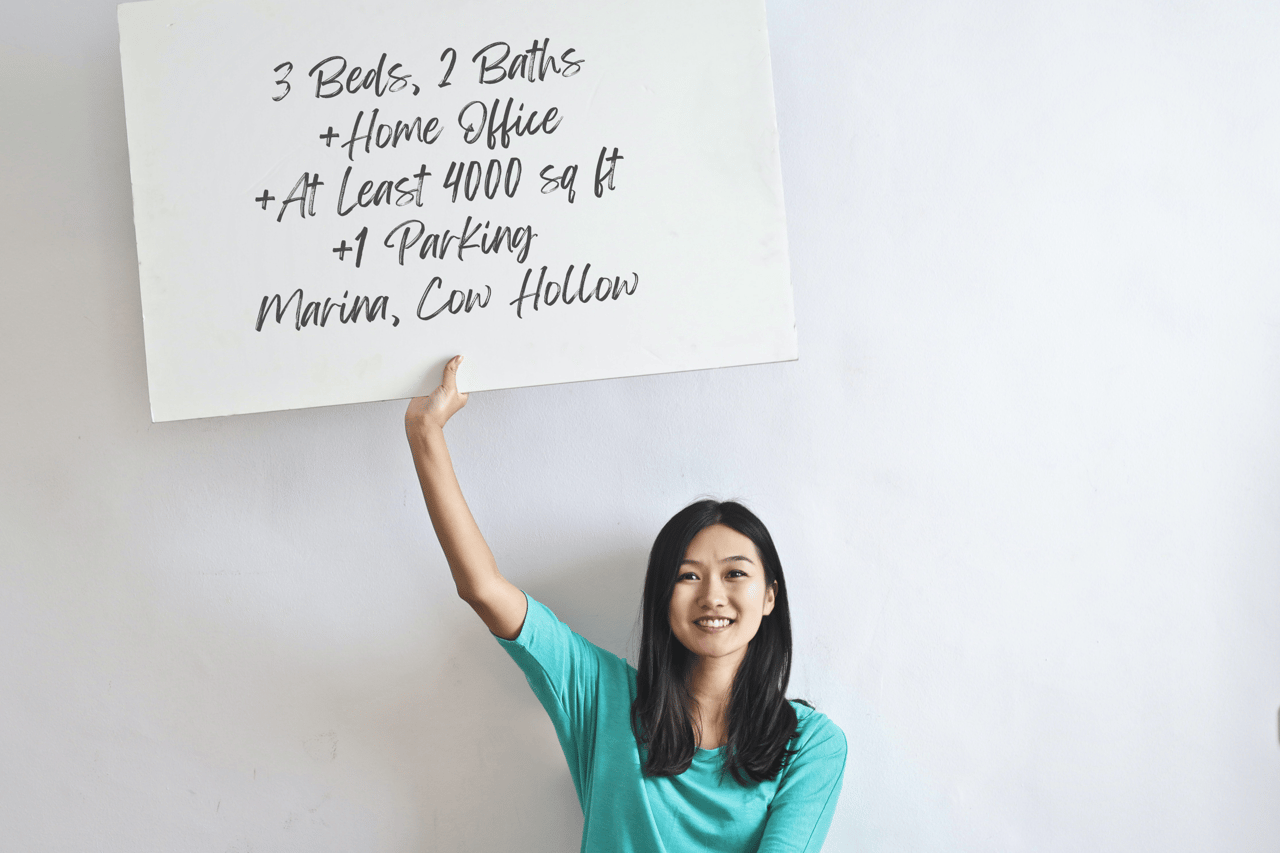 3 Beds, 2 Baths
+Home Office
+At Least 4000 sq ft
+1 Parking
Marina, Cow Hollow